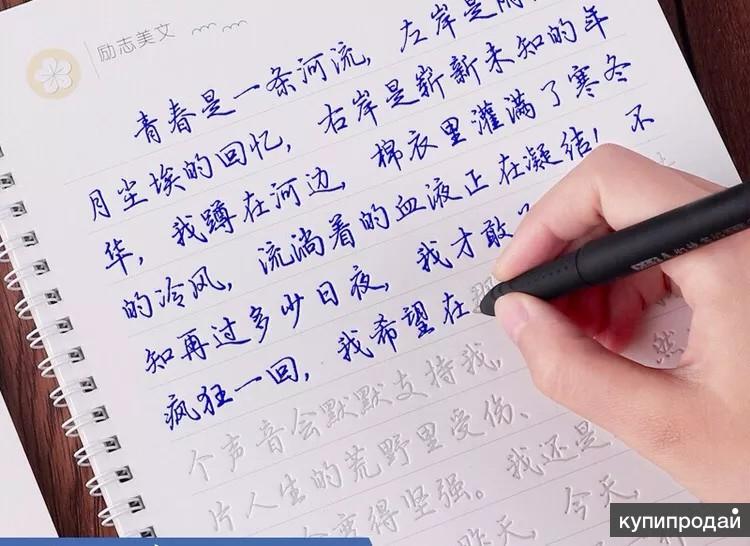 励志美文
青春是一条河流，左岸是
月尘埃的回忆，右岸是崭新未知的年
华，我蹲在河边，棉衣里灌满了寒冬
的冷风，流淌着的血液正在凝结！不
知再过多少日夜，我才敢
疯狂一回，我希望在
个声音会默默支持我，然
片人生的荒野里受伤、
变得坚强。我还是
昨天，今天，
купипродай